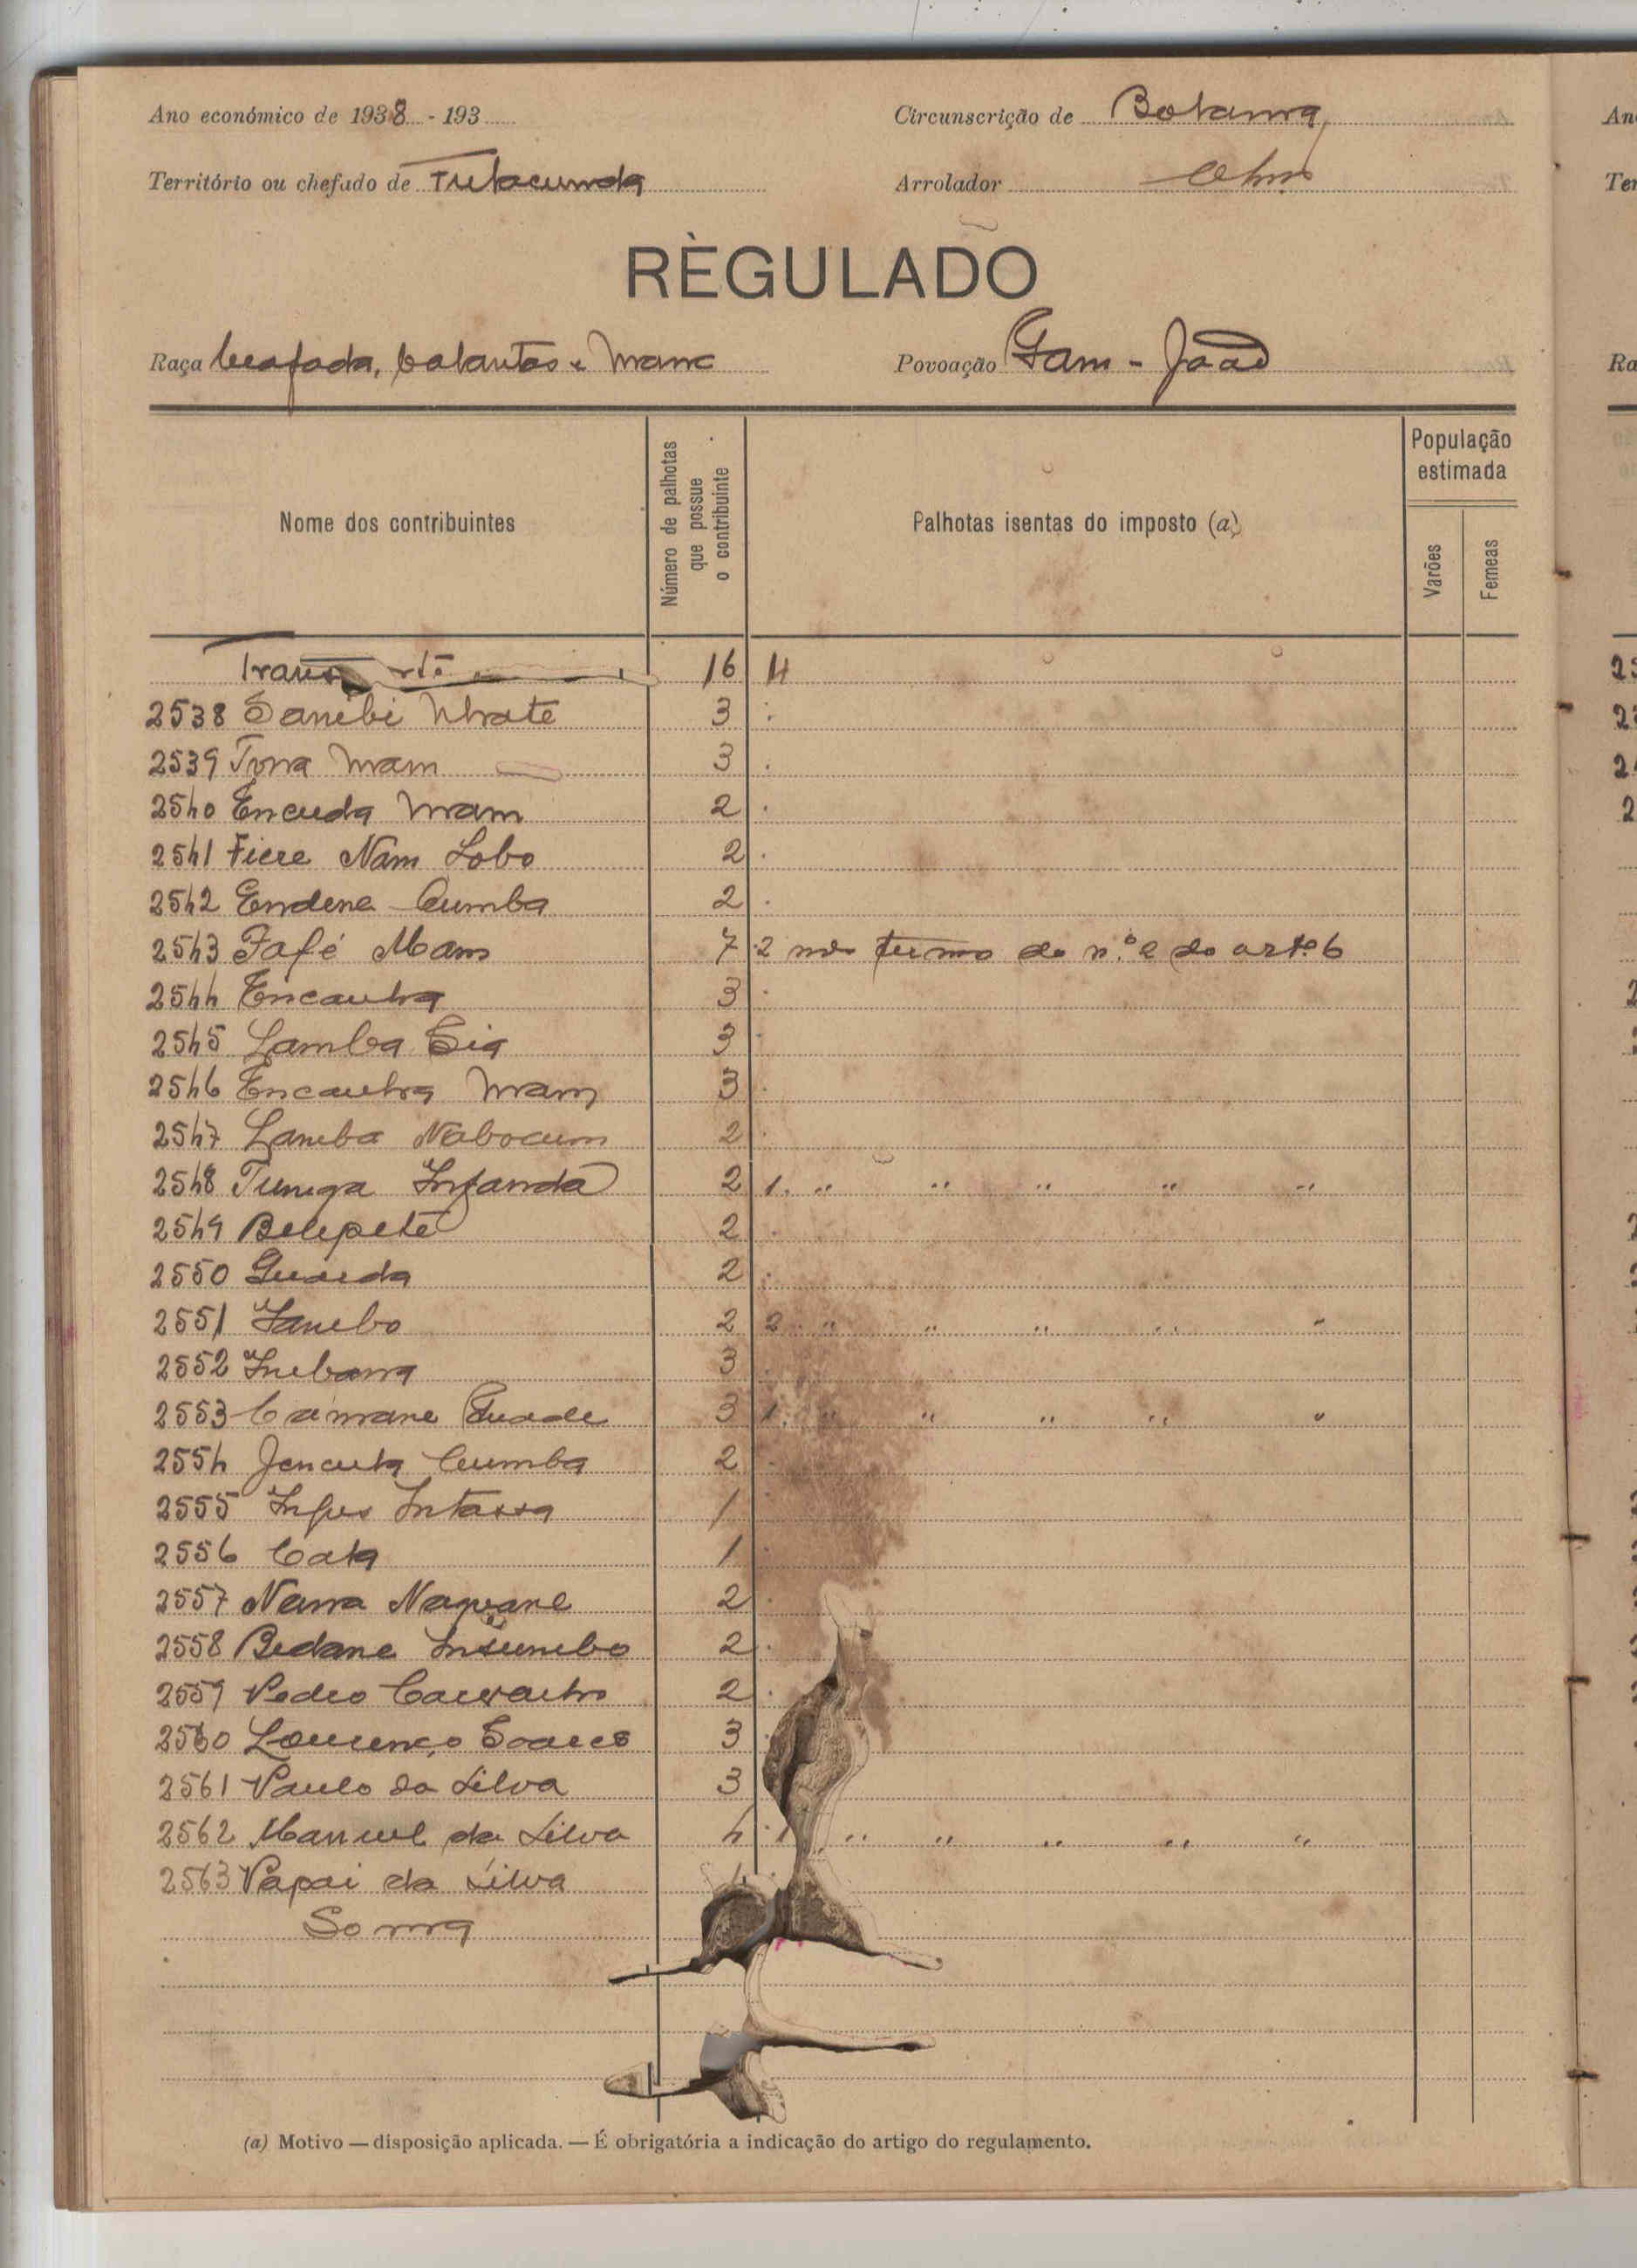 Ano económico de 1938 - 193
Circunscrição de Bolama
Território ou chefado de Fulacunda
Arrolador
RÈGULADO
Raça beafada, balantas e Manc
Povoação Gam - João
Nome dos contribuintes
Número de palhotas que possue o contribuinte
Palhotas isentas do imposto (a)
População estimada
Varões
Femeas
Trans rte 16 4
2538 Sambi 3
2539 Mam 3
2540 Encuda Mam 2
2541 Fiere Nam Lobo 2
2542 Endene Cumba 2
2543 Fafé Mam 7 2 nos termo do n.º 2 do artº 6
2544 Encanha 3
2545 Lamba Sia 3
2546 Encanha Mam 3
2547 Lamba Nabocum 2
2548 Tunga Infanda 2 1 " " " " "
2549 Belepete 2
2550 Guarda 2
2551 Iambo 2 2 " " " " "
2552 3
2553 Camane Quade 3 1 " " " " "
2554 Jencuta Cumba 2
2555 Intassa 1
2556 Cata 1
2557 Nama Naquane 2
2558 Bedane Insumbo 2
2559 Pedro Carvalho 2
2560 Lourenço Soares 3
2561 Paulo da Silva 3
2562 Manuel da Silva 4 1 " " " " "
2563 Papai da Silva
Soma
(a) Motivo — disposição aplicada. — É obrigatória a indicação do artigo do regulamento.